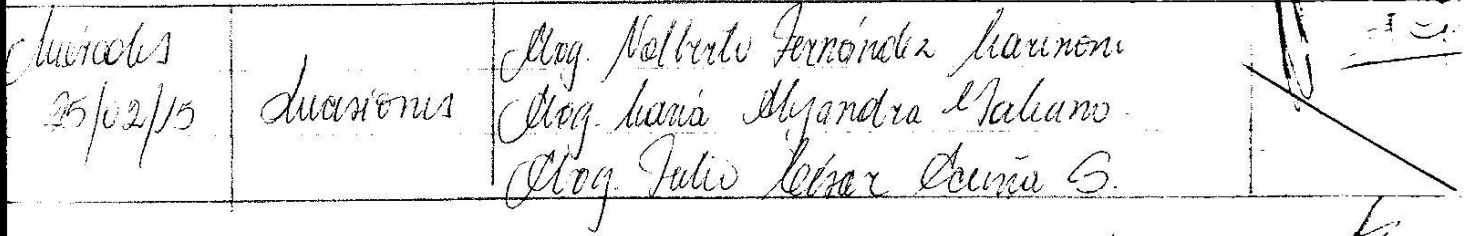 Miércoles
25/02/15
Abog. Norberto Fernández Marinoni
Abog. María Alejandra Galeano
Abog. Julio César Acuña S.